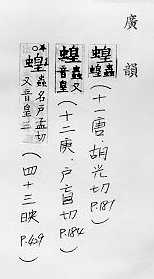 廣韻
蝗 蟲(十一唐.胡光切P.181)
蝗 蟲又音皇(十二庚.戶盲切P.184)
蝗 蟲名戶孟切又音皇三(四十三映P.429)